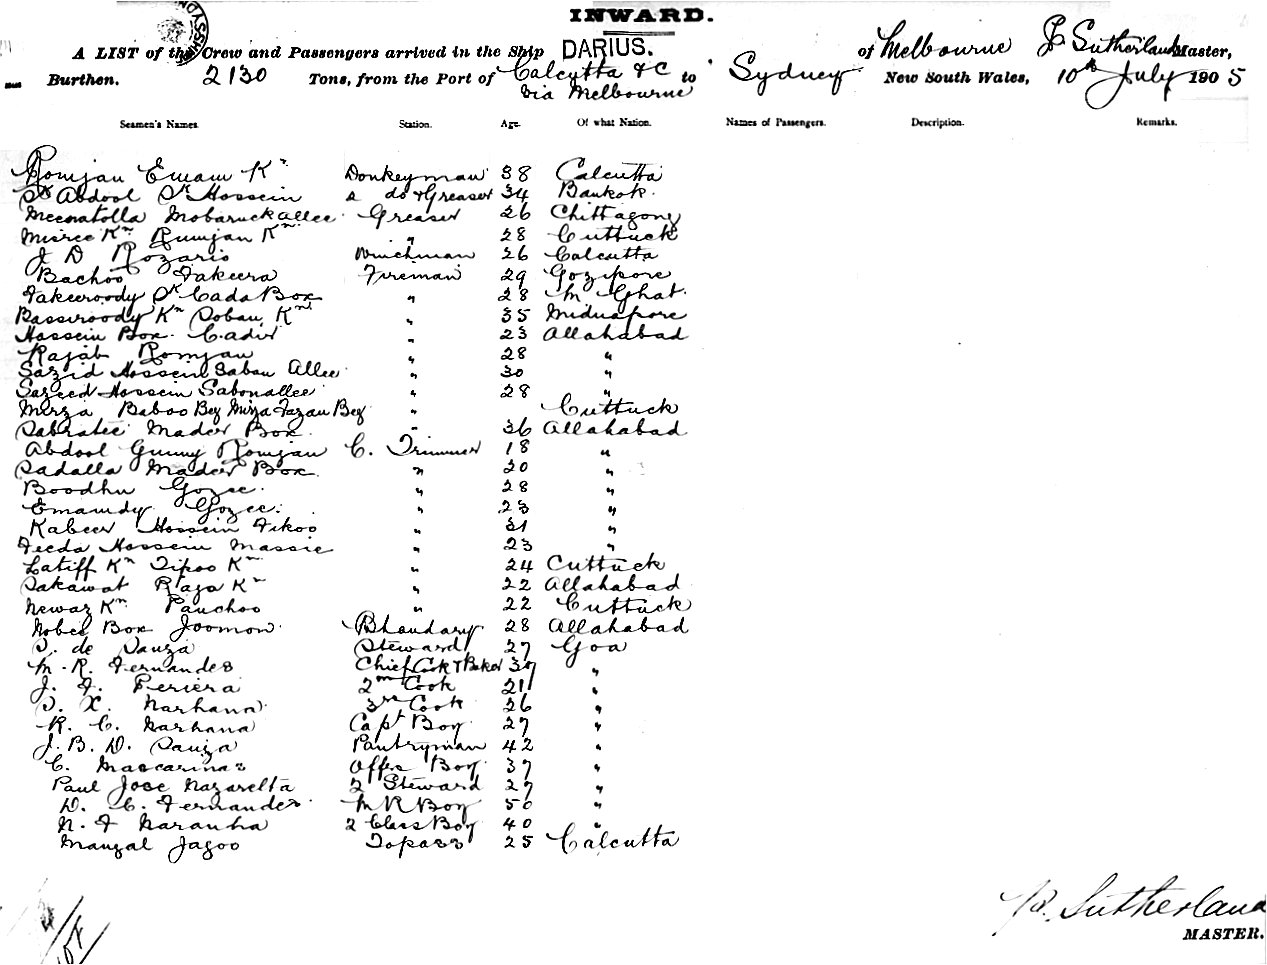 INWARD.
A LIST of the Crew and Passengers arrived in the Ship DARIUS. of Melbourne Sutherland Master,
Burthen. 2130 Tons, from the Port of Calcutta &c via Melbourne to Sydney New South Wales, 10th July 1905
Seamen's Names. Station. Age. Of what Nation. Names of Passengers. Description. Remarks.
Romjan Emam Kn Donkeyman 38 Calcutta
Sk Abdool Sk Hossein do & Greaser 34 Bankok.
Meenatolla Mobaruckallee Greaser 26 Chittagong
Misree Kn Rumjan Kn " 28 Cuttuck
J D Rozario Winchman 26 Calcutta
Bachoo Fakeera Fireman 29 Gozipore
Fakeeroody Sk Cada Box " 28 M Ghat.
Bassiroody Kn Soban Kn " 35 Midnapore
Hossein Box. Cadir " 23 Allahabad
Rajab Romjan " 28 "
Sazid Hossein Saban Allee " 30 "
Sazeed Hossein Sabonallee " 28 "
Mirza Baboo Beg Mirza Fazan Beg " Cuttuck
Sabratee Mader Box. " 36 Allahabad
Abdool Gunny Romjan C. Trimmer 18 "
Sadalla Mader Box. " 20 "
Boodhu Gozee. " 28 "
Emamdy Gozee. " 23 "
Kabeer Hossein Fikoo " 31 "
Feeda Hossein Massie " 23 "
Latiff Kn Tipoo Kn " 24 Cuttuck
Sakawat Raja Kn " 22 Allahabad
Newaz Kn Panchoo " 22 Cuttuck
Nobee Box Joomon. Bhandary 28 Allahabad
de Sauza Steward 27 Goa
M. R. Fernandes Chief Cook & Baker "
J. F. Periera 2nd Cook 21 "
X. Narhana 3rd Cook 26 "
R. C. Narhana Capt Boy 27 "
J. B. D. Sauza Pantryman 42 "
C. Mascarinas Offrs Boy 37 "
Paul Jose Nazarelta 2 Steward 27 "
D. C. Fernandes M R Boy 50 "
N. F Naranha 2 Class Boy 40 "
Mangal Jagoo Topass 25 Calcutta
Sutherland
MASTER.